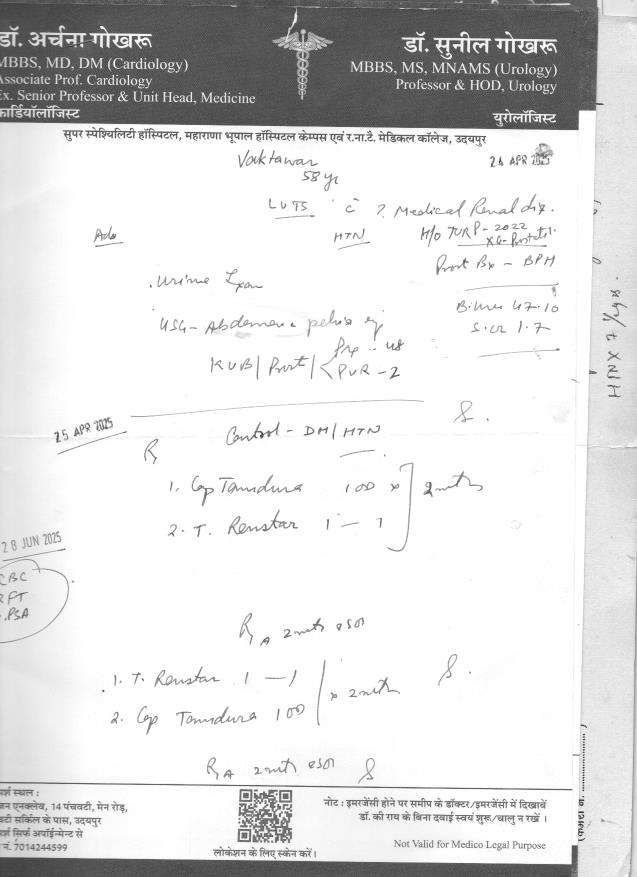 डॉ. अर्चना गोखरू
MBBS, MD, DM (Cardiology)
Associate Prof. Cardiology
Ex. Senior Professor & Unit Head, Medicine
कार्डियॉलॉजिस्ट
डॉ. सुनील गोखरू
MBBS, MS, MNAMS (Urology)
Professor & HOD, Urology
युरोलॉजिस्ट
सुपर स्पेश्यिलिटी हॉस्पिटल, महाराणा भूपाल हॉस्पिटल केम्पस एवं र.ना.टै. मेडिकल कॉलेज, उदयपुर
Vaktawar
58 yr
24 APR 2025
LUTS c̄ ? Medical Renal dis.
Adv HTN H/O TURP - 2022
Prost Bx - BPH
Urine Exam
B. urea 47.10
USG - Abdomen & pelvis
S. cr 1.7
KUB / Prost /
PVR - 2
25 APR 2025
Control - DM / HTN
R
1. Cap Tamdura 100 x 2 mths
2. T. Renstar 1 - 1
28 JUN 2025
CBC
RFT
PSA
1. T. Renstar 1 - 1 x 2 mth
2. Cap Tamdura 100
र्श स्थल :
जन एनक्लेव, 14 पंचवटी, मेन रोड़,
वटी सर्किल के पास, उदयपुर
र्श सिर्फ अपॉईन्मेन्ट से
नं. 7014244599
लोकेशन के लिए स्केन करें।
नोट : इमरजेंसी होने पर समीप के डॉक्टर/इमरजेंसी में दिखावें
डॉ. की राय के बिना दवाई स्वयं शुरू/चालु न रखें।
Not Valid for Medico Legal Purpose